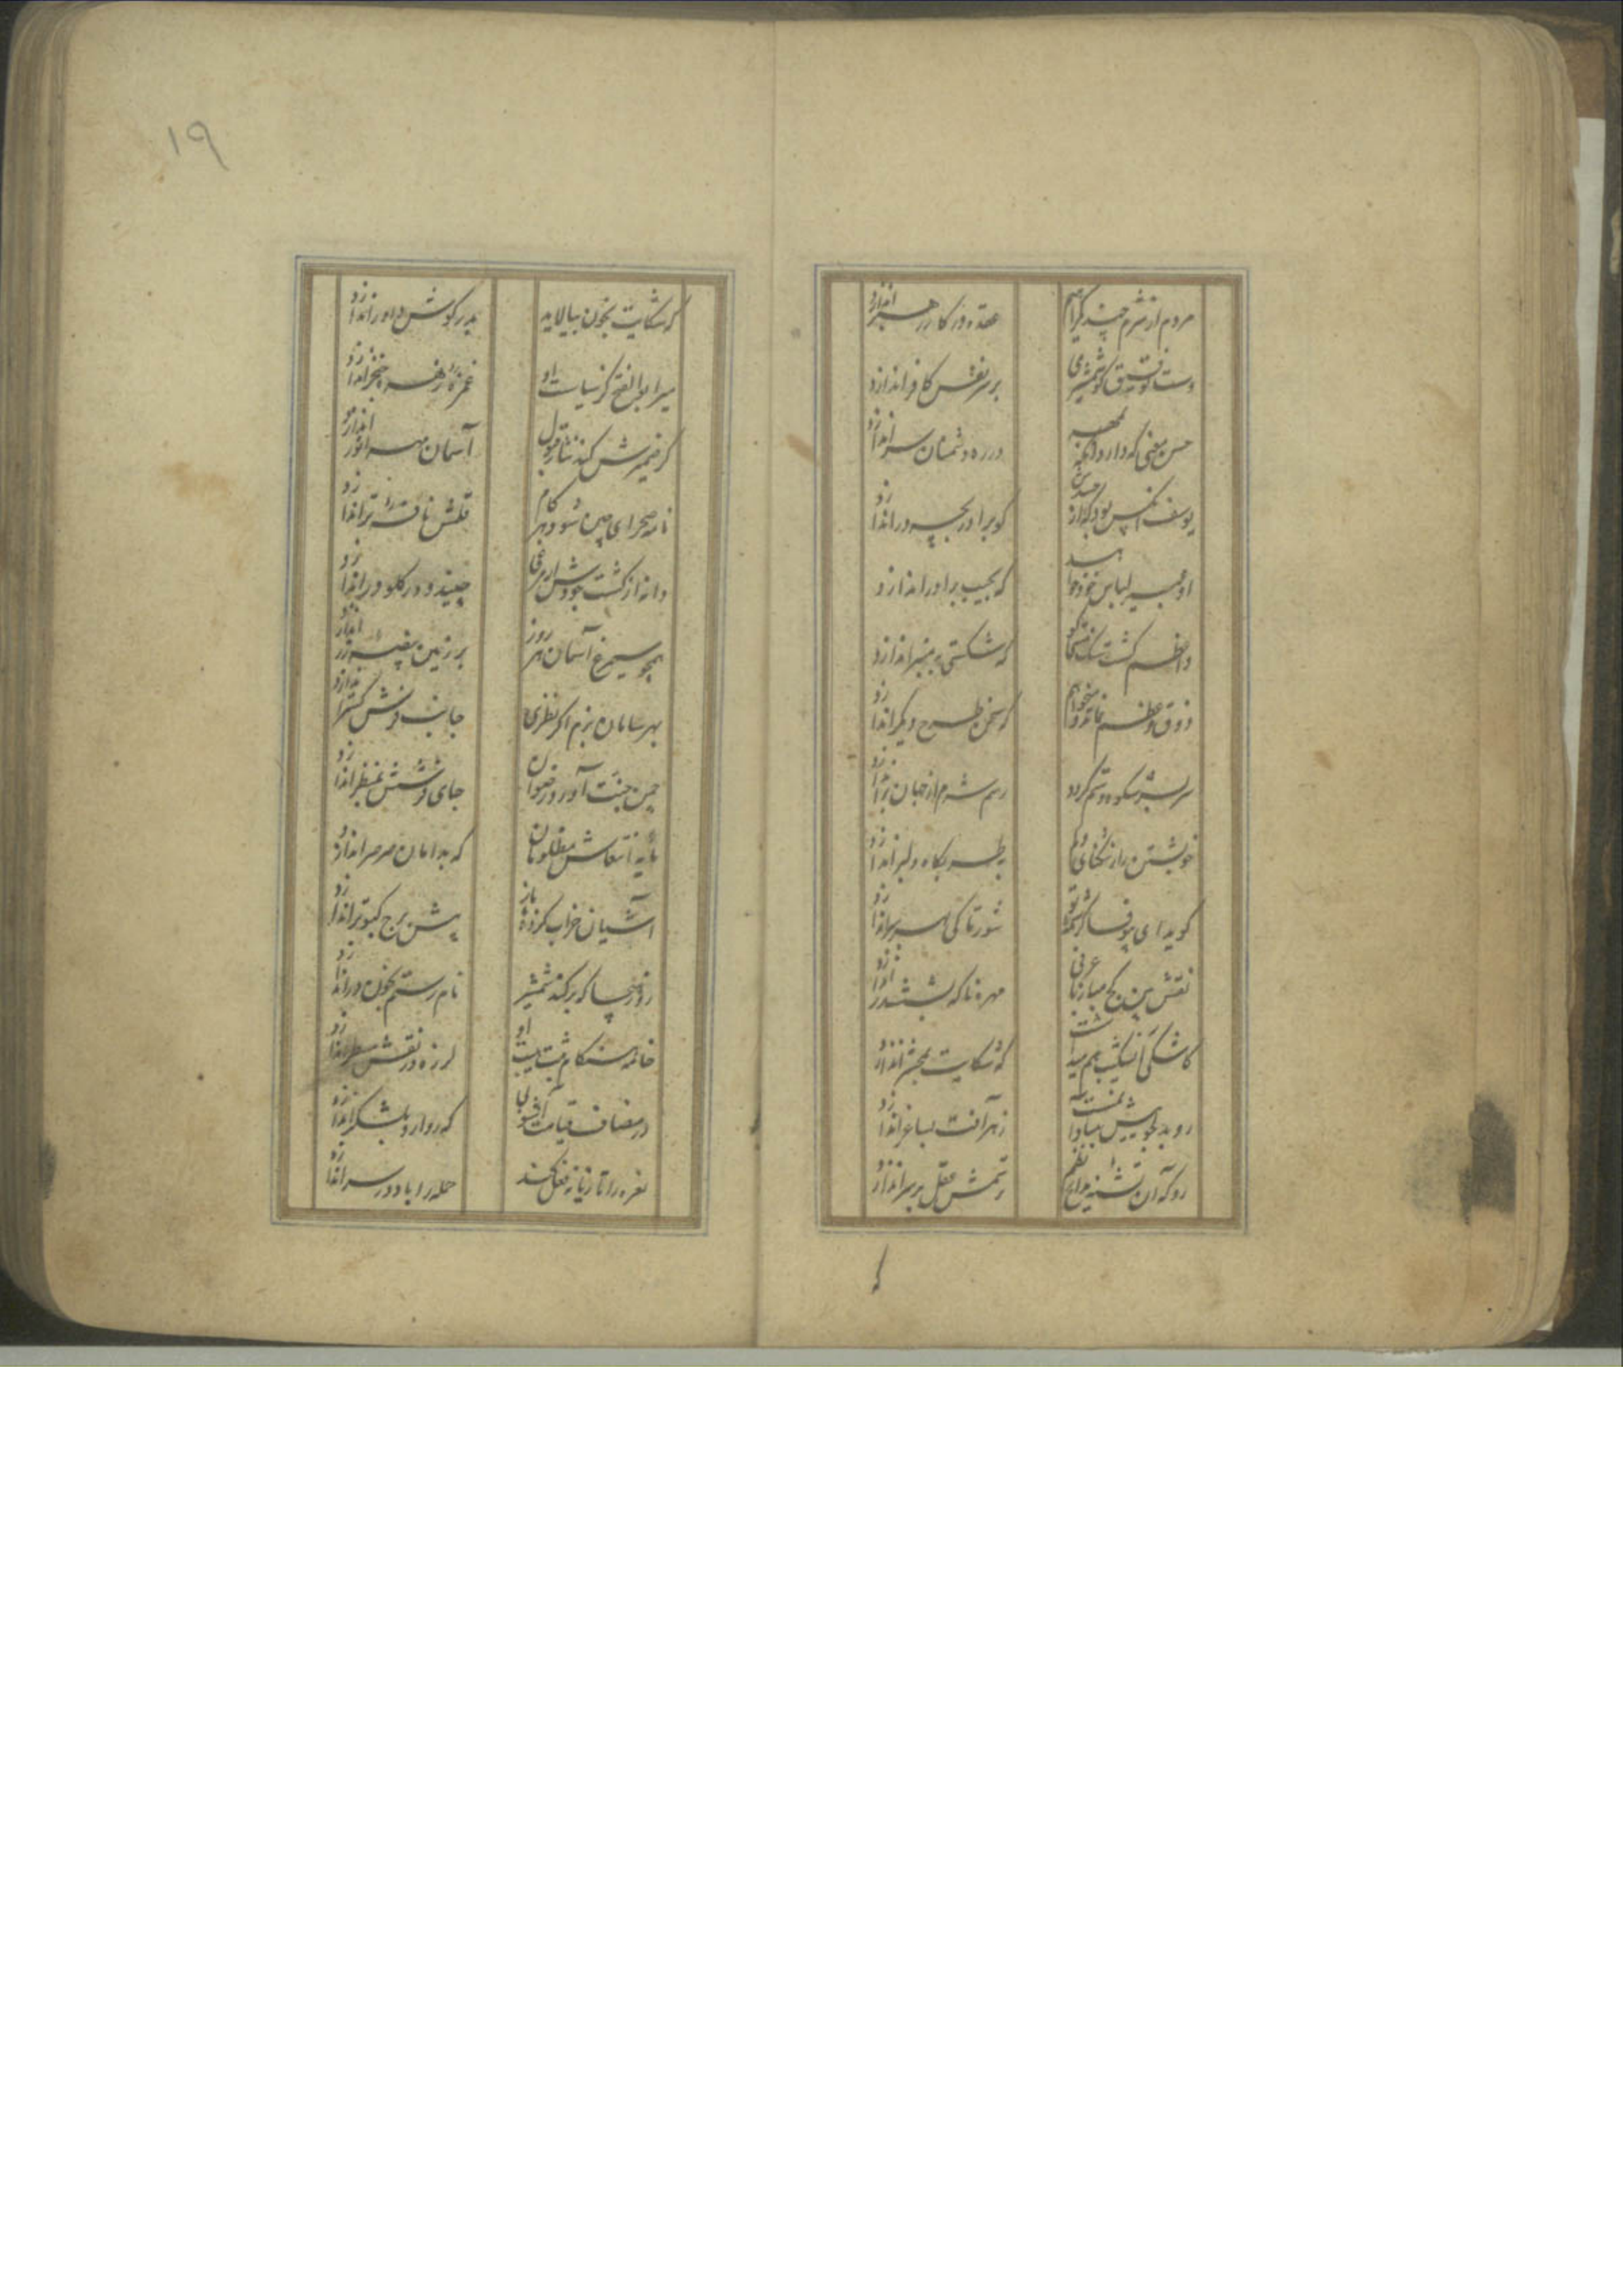 ۱۹
مردم از شرم چند گرامم عقده در کار رهبر اندازد
دست توفیق کو شمشیری بر سر نفس کافر اندازد
حسن معنی که دارد در ره دشمنان سر اندازد
یوسف کو برادر بچه در اندازد
او لباس خود که بجیب برادر اندازد
واعظم کشت که شکستی به منبر اندازد
ذوق وعظم نماند میخواهم که سخن طرح دیگر اندازد
سر بسر شکوه و ستم گردد رسم شرم از جهان بر اندازد
خویشتن را ز تنگنای دلم بطربگاه دلبر اندازد
گوید ای بیوفا کرشمه تو شور تا کی بهر سر اندازد
نقش بین کج مباز تا عرفی مهره ناگه بششدر اندازد
کاشکی که شکایت بمحشر اندازد
رو بدلجوییش مبادا زهر آفت بساغر اندازد
رو که آن تشنه رستمش عقل بر سر اندازد
که شکایت بخون بیالاید بدر گوش داور اندازد
میر ابوالفتح کز سیاست او غمزه زهره خنجر اندازد
گر ضمیرش کند نثار قبول آسمان مهر انور اندازد
نامه صحرای چین شود هر گام قلمش نافه تر اندازد
دانه از کشت جودش ار مرغی چیند و در گلو در اندازد
همچو سیمرغ آسمان هر روز بر زمین بیضه زر اندازد
بهر سامان بزم اگر نظری جانب فرش گستر اندازد
چمن جنت آورد رضوان جای فرشش بمنظر اندازد
مایه انتعاش مظلومان که بدامان صرصر اندازد
آشیان خراب کرده باز پیش برج کبوتر اندازد
روز هیجا که برکند شمشیر نام رستم بخون در اندازد
خامه هنگام ثبت هیبت او لرزه در نقش مسطر اندازد
در مصاف قیامت آشوبی که روارو بلشکر اندازد
نعره را تازیانه فعل کند حمله را باد در سر اندازد
که